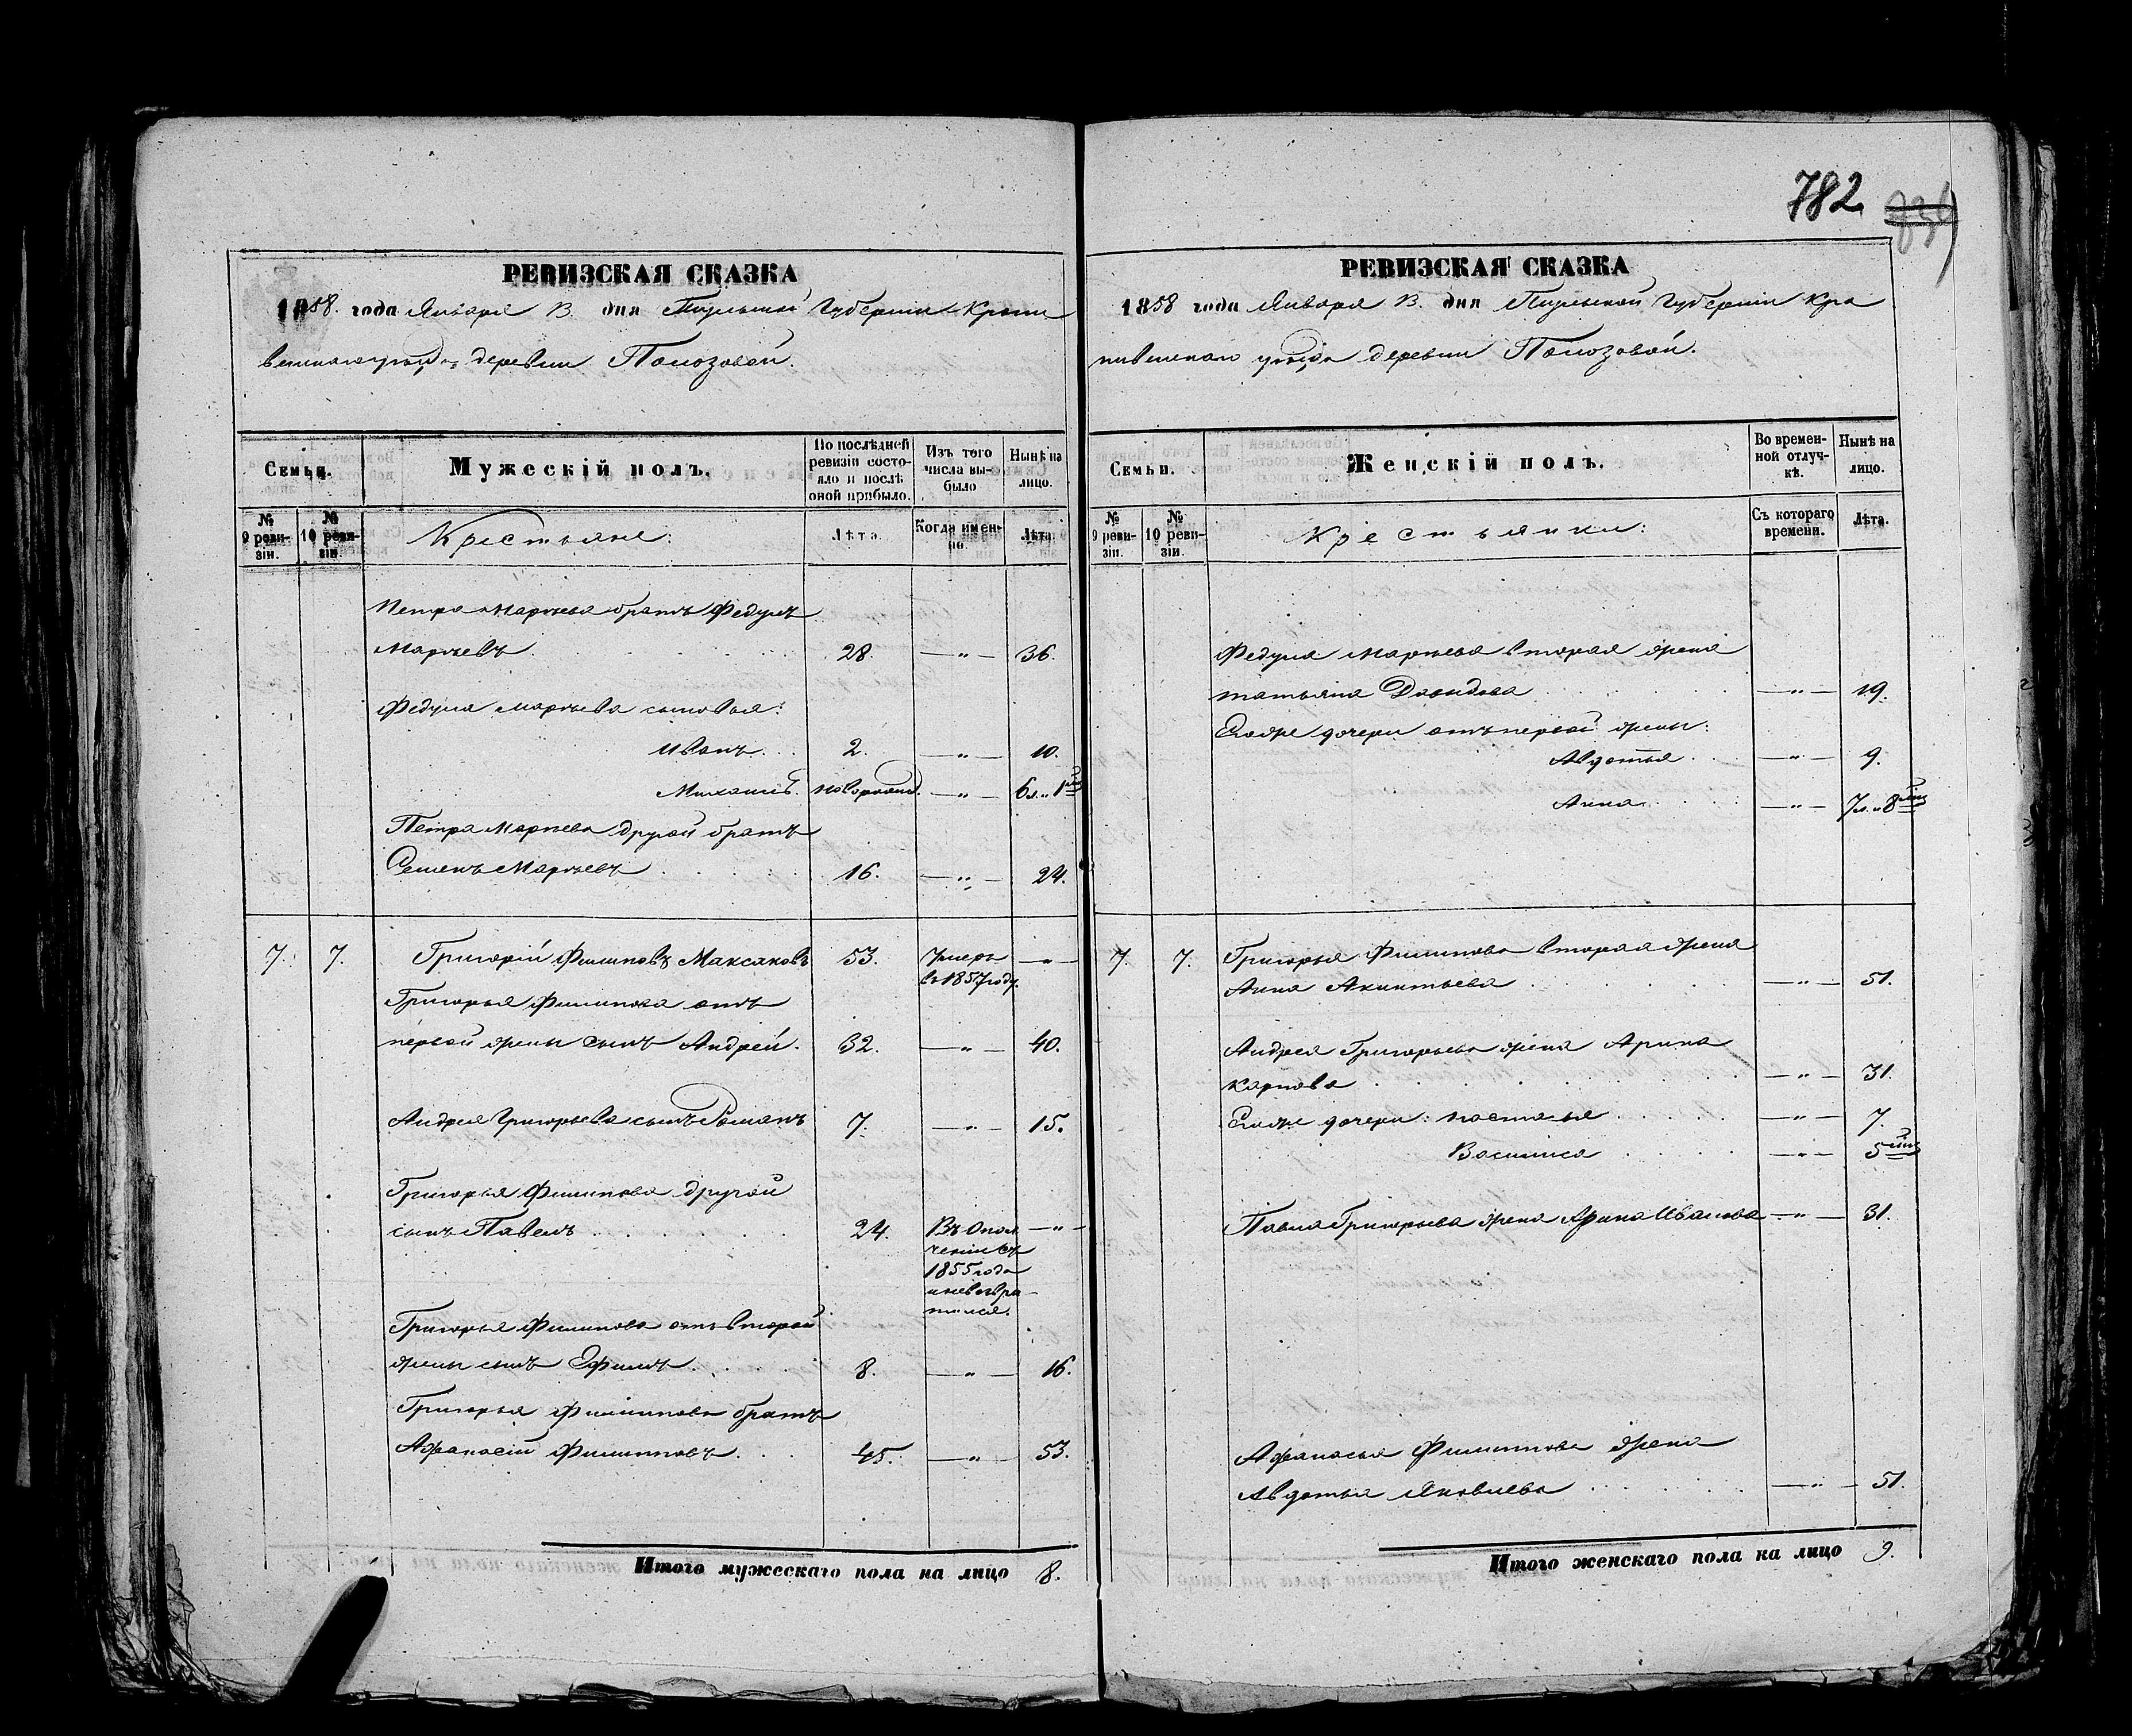 782.
РЕВИЗСКАЯ СКАЗКА
1858. года Января В. дня Тульской Губерніи Крапи
венскаго уѣзда деревни Полозовой.
Семьи.
Мужескій полъ.
По послѣдней ревизіи состояло и послѣ оной прибыло.
Изъ того числа выбыло
Нынѣ на лицо.
№ 9 ревизіи.
№ 10 ревизіи.
Крестьяне:
Лѣта.
Когда именно.
Лѣта.
Петра Маркѣева братъ Федулъ
Маркѣевъ 28. —"— 36.
Федула Маркѣева сыновья:
Иванъ 2. —"— 10.
Михаилъ. новорожд. —"— 6 л. и 1 мѣс
Петра Маркѣева другой братъ
Семенъ Маркѣевъ 16. —"— 24.
7. 7. Григорій Филиповъ Максаковъ 53. Умеръ въ 1857 году. —"—
Григорья Филипова отъ
первой жены сынъ Андрей. 32. —"— 40.
Андрея Григорьева сынъ Романъ 7. —"— 15.
Григорья Филипова другой
сынъ Павелъ 24. Въ Опол —"—
ченіи съ
1855 года
и невозвра
тился.
Григорья Филипова отъ второй
жены сынъ Ефимъ 8. —"— 16.
Григорья Филипова братъ
Афанасій Филиповъ. 45. —"— 53.
Итого мужескаго пола на лицо 8.
РЕВИЗСКАЯ СКАЗКА
1858 года Января В. дня Тульской Губерніи Кра
пивенскаго уѣзда деревни Полозовой.
Семьи.
Женскій полъ.
Во временной отлучкѣ.
Нынѣ на лицо.
№ 9 ревизіи.
№ 10 ревизіи.
Крестьянки:
Съ котораго времени.
Лѣта.
Федула Маркѣева вторая жена
татьяна Давыдова —"— 19.
Егоже дочери отъ первой жены:
Авдотья —"— 9.
Анна —"— 7 л. и 8 мѣс
7. 7. Григорья Филипова вторая жена
Анна Акинтьева —"— 51.
Андрея Григорьева жена Арина
карпова —"— 31.
Егоже дочери: настасья —"— 7.
Василиса —"— 5 мѣс
Павла Григорьева жена Арина Иванова —"— 31.
Афанасья Филиппова жена
Авдотья Яковлева —"— 51.
Итого женскаго пола на лицо 9.